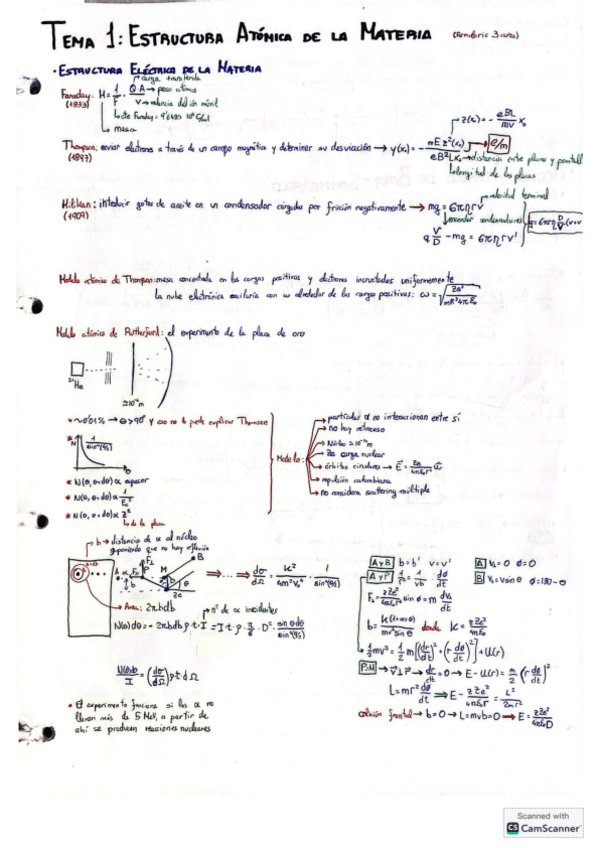 TEMA 1: ESTRUCTURA ATÓMICA DE LA MATERIA (Formulario 3 caras)
• ESTRUCTURA ELÉCTRICA DE LA MATERIA
carga transferida
Faraday: M = 1/F · Q·A/V → peso atómico
(1833) → valencia del ión móvil
cte Faraday
masa
z(x₀) = - eBL/mv x₀
Thompson: enviar electrones a través de un campo magnético y determinar su desviación → y(x₀) = - mEz²(x₀)/eB²Lx₀ → e/m
(1897) → distancia entre placas y pantalla
longitud de las placas
velocidad terminal
Millikan: introducir gotas de aceite en un condensador cargado por fricción negativamente → mg = 6πηrv
(1909) encender condensadores
q V/D - mg = 6πηrv'
Modelo atómico de Thompson: masa concentrada en las cargas positivas y electrones incrustados uniformemente
la nube electrónica oscilaría con ω alrededor de las cargas positivas: ω =
Modelo atómico de Rutherford: el experimento de la placa de oro
⁴He
≈10⁻⁶m
* ~0'01% → θ > 90° y eso no lo puede explicar Thomson
* N 1/sin⁴(θ/2)
θ
* N(θ, θ+dθ) ∝ espesor
* N(θ, θ+dθ) ∝ 1/E²
* N(θ, θ+dθ) ∝ Z²
de la placa
Modelo:
partículas α no interaccionan entre sí
no hay retroceso
Núcleo ≈ 10⁻¹⁴m
Ze carga nuclear
órbitas circulares →
repulsión coulombiana
no considera scattering múltiple
b → distancia de α al núcleo
suponiendo que no hay repulsión
Área: 2πbdb
nº de α incidentes
dσ/dΩ = K²/4m²v₀⁴ · 1/sin⁴(θ/2)
N(θ)dθ = -2πbdb ρ·t·I = I·t·ρ · π/8 · D² · sinθdθ/sin⁴(θ/2)
N(θ)dθ/I = (dσ/dΩ) ρ·t dΩ
• El experimento funciona si las α no
llevan más de 5 MeV, a partir de
ahí se producen reacciones nucleares
A y B b = b' v = v'
A y P 1/r² = 1/vb dφ/dt
A V⊥ = 0 φ = 0
B V⊥ = v sinθ φ = 180-θ
F⊥ = zZe²/4πε₀r² sinφ = m dv⊥/dt
b = K(1+cosθ)/mv² sinθ donde K = zZe²/4πε₀
½mv² = 1/2 m[(dr/dt)² + (r dφ/dt)²] + U(r)
P=M → v⊥r → dr/dt = 0 → E - U(r) = m/2 (r dφ/dt)²
L = mr² dφ/dt ⇒ E - zZe²/4πε₀r = L²/2mr²
colisión frontal → b = 0 → L = mvb = 0 → E = zZe²/4πε₀D
Scanned with
CS CamScanner